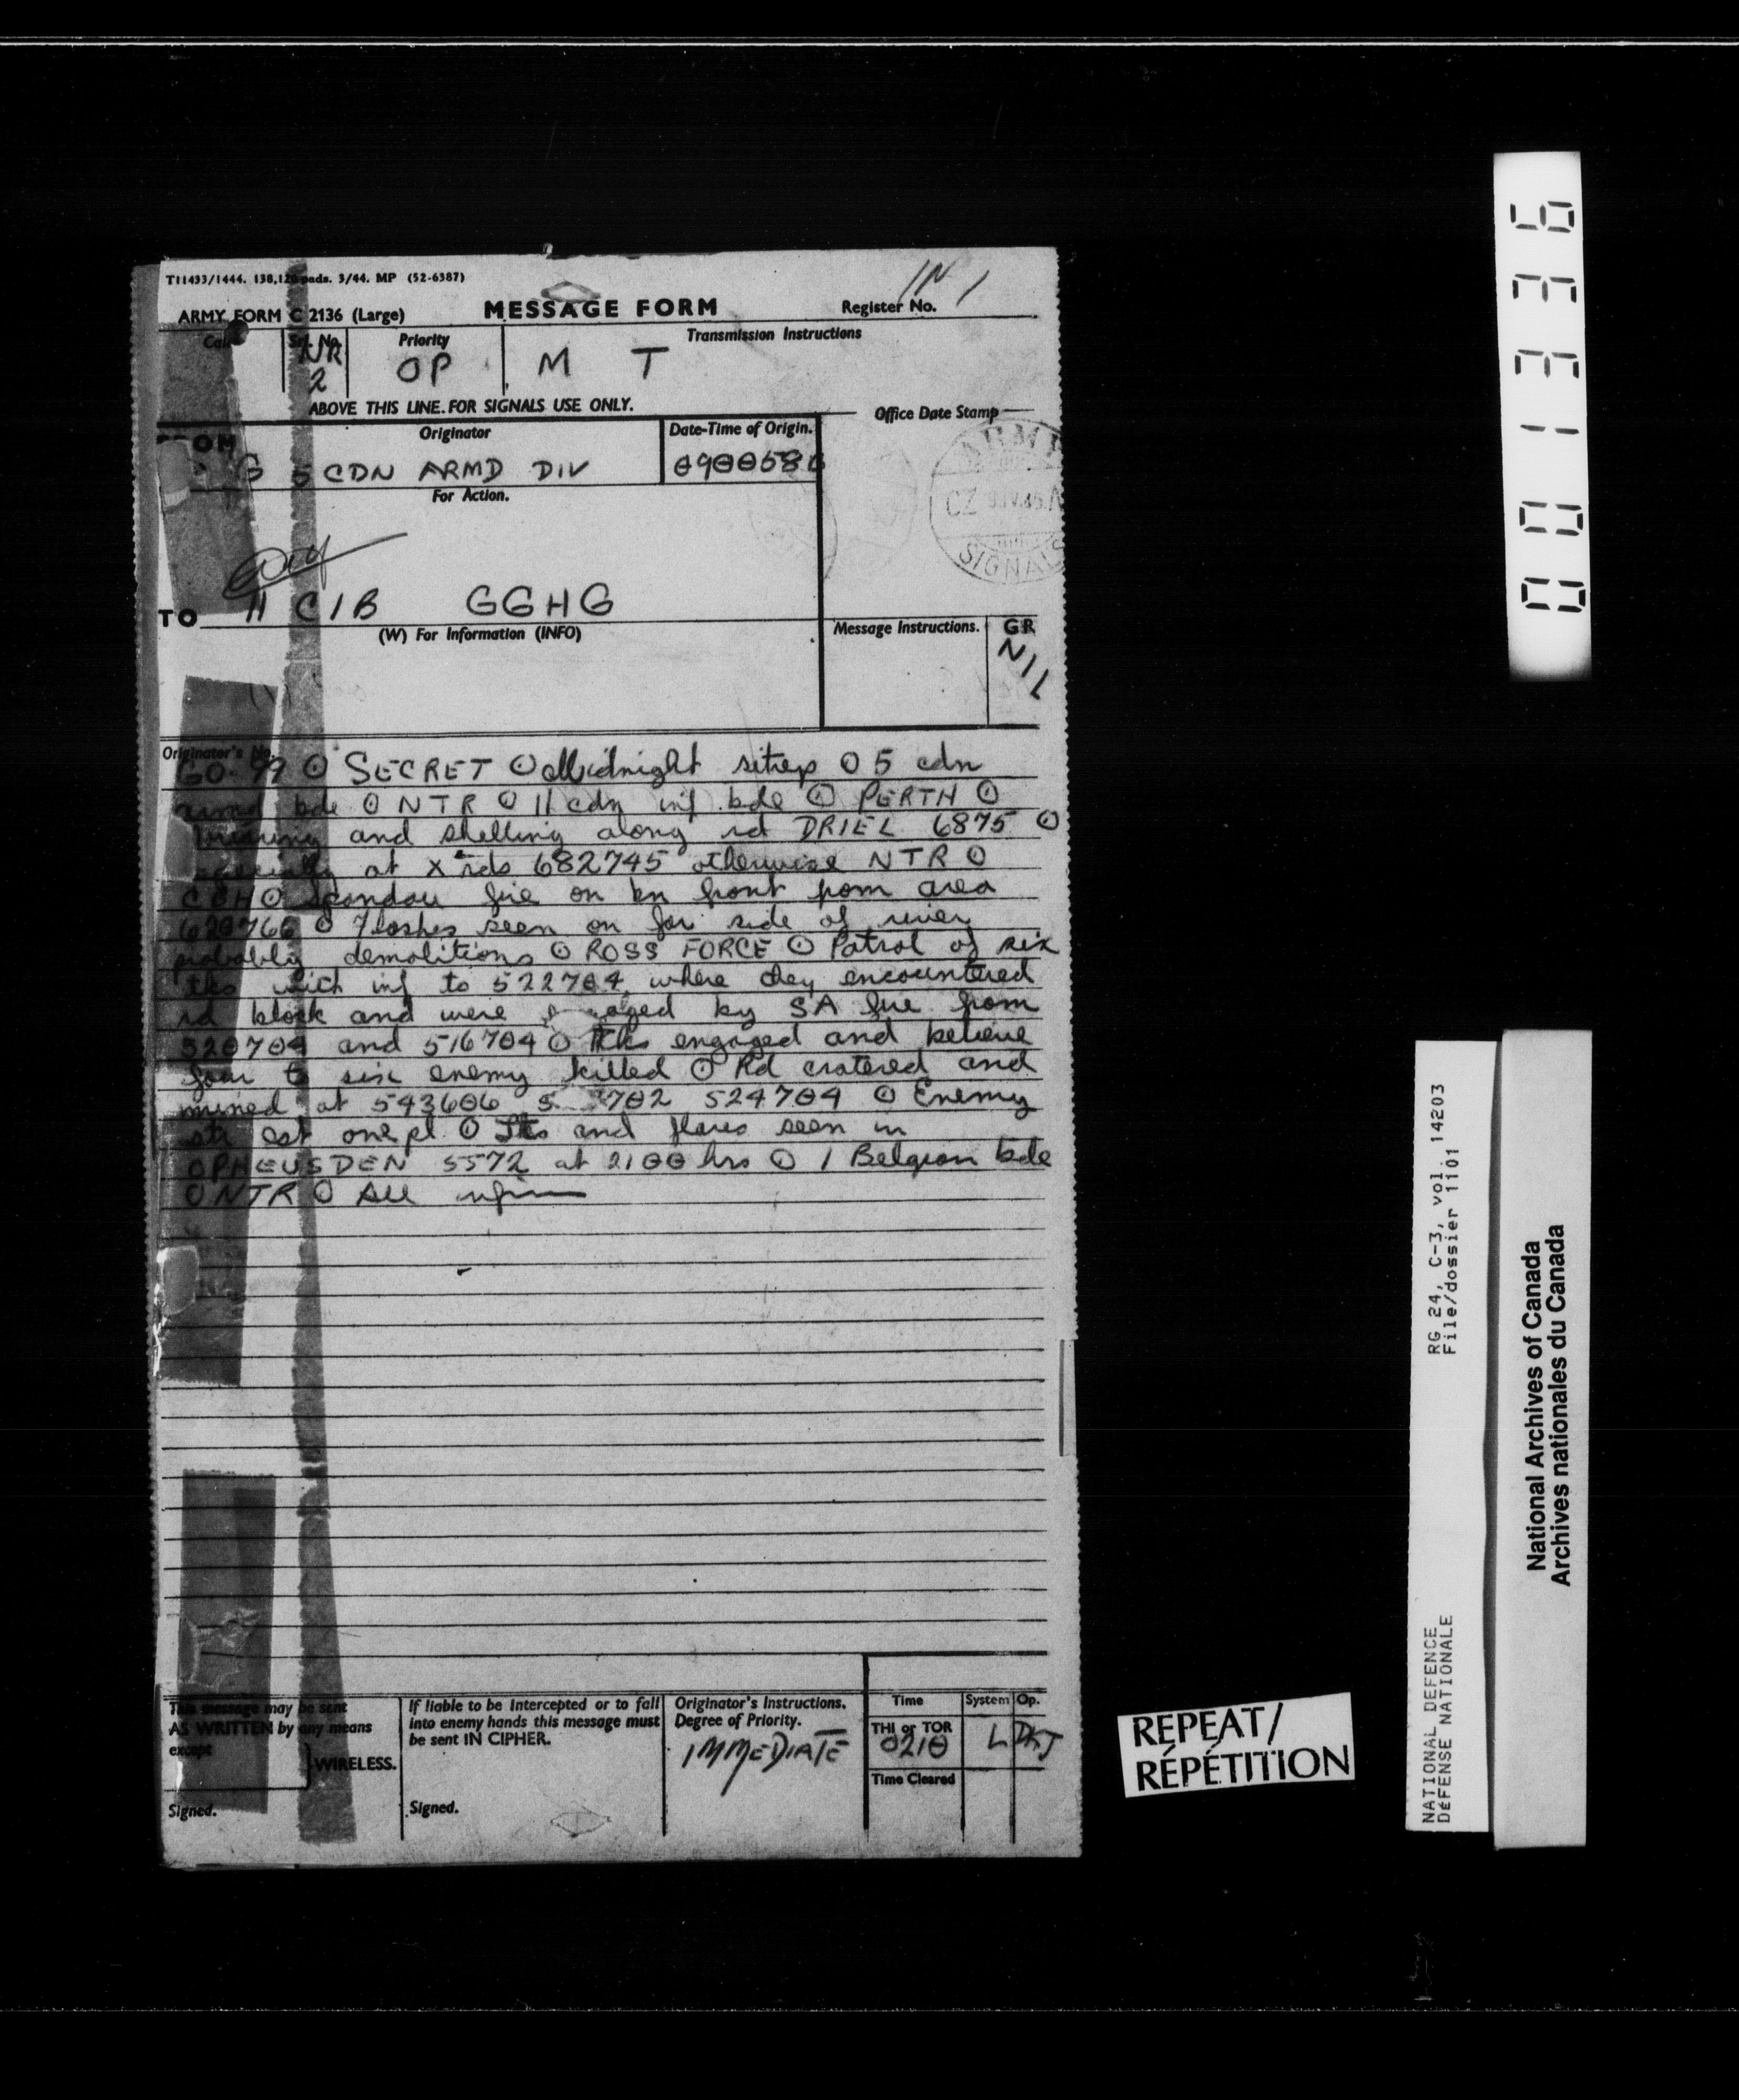 T11433/1444. 138,120 pads. 3/44. MP (52-6387)
IN 1
ARMY FORM C 2136 (Large) MESSAGE FORM Register No.
Call Srl. No. Priority Transmission Instructions
NR 2 OP M T
ABOVE THIS LINE FOR SIGNALS USE ONLY.
Office Date Stamp
FROM Originator Date-Time of Origin.
G 5 CDN ARMD DIV 090058B
For Action.
ARMY
CZ 9.IV.45.A
SIGNALS
TO 11 CIB GGHG
(W) For Information (INFO) Message Instructions. GR
NIL
Originator's No.
GO-99 ⊙ SECRET ⊙ Midnight sitrep ⊙ 5 cdn
armd bde ⊙ NTR ⊙ 11 cdn inf bde ⊙ PERTH ⊙
and shelling along rd DRIEL 6875 ⊙
especially at X rds 682745 otherwise NTR ⊙
CBH ⊙ Spandau fire on bn front from area
⊙ Flashes seen on far side of river
probably demolitions ⊙ ROSS FORCE ⊙ Patrol of six
tks with inf to 522704 where they encountered
rd block and were engaged by SA fire from
520704 and 516704 ⊙ Tks engaged and believe
four to six enemy killed ⊙ Rd cratered and
mined at 543606 702 524704 ⊙ Enemy
str est one pl ⊙ and flares seen in
OPHEUSDEN 5572 at 2100 hrs ⊙ 1 Belgian bde
⊙ NTR ⊙ All
This message may be sent AS WRITTEN by any means except WIRELESS.
If liable to be intercepted or to fall into enemy hands this message must be sent IN CIPHER.
Originator's Instructions. Degree of Priority.
IMMEDIATE
Time System Op.
THI or TOR
0210 L DKJ
Time Cleared
Signed. Signed.
REPEAT/
RÉPÉTITION
001336
RG 24, C-3, vol. 14203
File/dossier 1101
NATIONAL DEFENCE
DÉFENSE NATIONALE
National Archives of Canada
Archives nationales du Canada